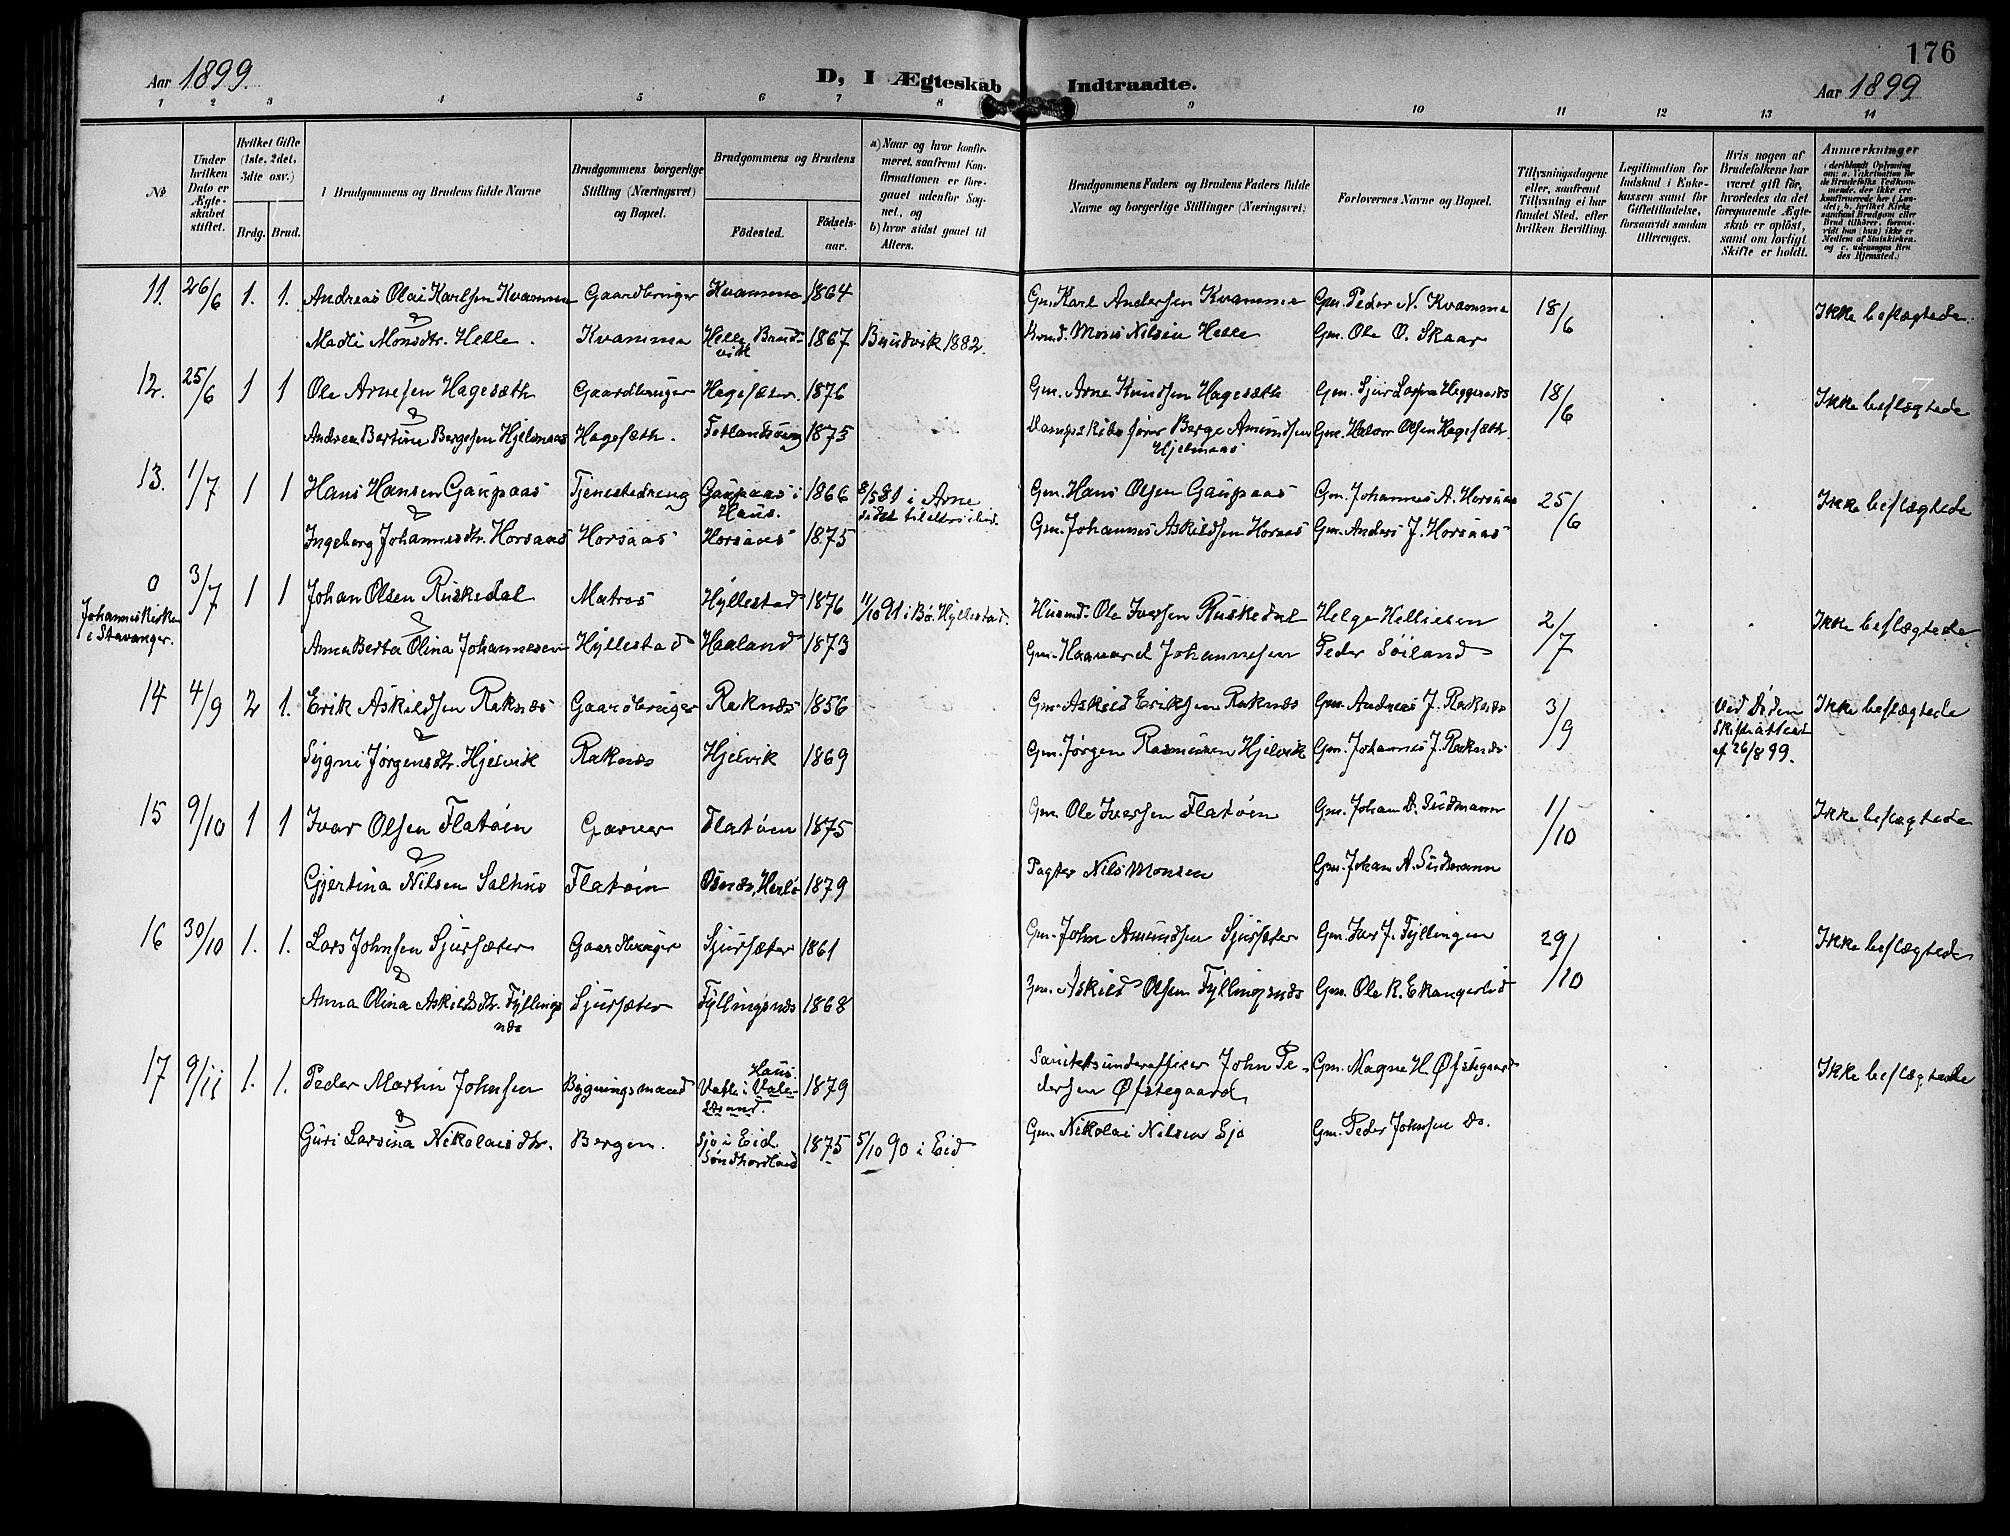 176
Aar 1899.
D, I Ægteskab Indtraadte.
Aar 1899
1 2 3 4 5 6 7 8 9 10 11 12 13 14
No
Under hvilken Dato er Ægteskabet stiftet.
Hvilket Gifte (1ste, 2det, 3die osv.)
Brdg. Brud.
Brudgommens og Brudens fulde Navne
Brudgommens borgerlige Stilling (Næringsvei) og Bopæl.
Brudgommens og Brudens
Fødested.
Fødselsaar.
a) Naar og hvor konfirmeret, saafremt Konfirmationen er foregaaet udenfor Sognet, og
b) hvor sidst gaaet til Alters.
Brudgommens Faders og Brudens Faders fulde Navne og borgerlige Stillinger (Næringsvei)
Forlovernes Navne og Bopæl.
Tillysningsdagene eller, saafremt Tillysning ei har fundet Sted, efter hvilken Bevilling.
Legitimation for Indskud i Enkekassen samt for Giftetilladelse, forsaavidt saadan tiltrænges.
Hvis nogen af Brudefolkene har været gift før, hvorledes da det foregaaende Ægteskab er opløst, samt om lovligt Skifte er holdt.
Anmærkninger
11. 26/6 1. 1. Andreas Olai Karlsen Kvamme Gaardbruger Kvamme 1864 Gm. Karl Andersen Kvamme Gm. Peder N. Kvamme 18/6 Ikke beslægtede.
&
Madli Monsdtr. Helle. Kvamme Helle Brudvik 1867 Brudvik 1882. Mons Nilsen Helle Gm. Ole O. Skaar
12. 25/6 1 1 Ole Arnesen Hagesæth Gaardbruger Hagesæter 1876 Gm. Arne Knudsen Hagesæth Gm. Sjur Heggernæs 18/6 Ikke beslægtede
&
Andrea Bertine Bergesen Hjelmaas Hagesæth. Fotlandsvaag 1875 Berge Amundsen Hjelmaas Gm. Halvor Olsen Hagesæth.
13. 1/7 1 1 Hans Hansen Gaupaas Tjenestedreng Gaupaas i Haus. 1866 8/5 81 i Arne Gm. Hans Olsen Gaupaas Gm. Johannes A. Horsaas 25/6 Ikke beslægtede
&
Ingeborg Johannesdtr. Horsaas Horsaas Horsaas 1875 Gm. Johannes Askildsen Horsaas Gm. Anders J. Horsaas
0 Johanneskirken i Stavanger. 3/7 1 1 Johan Olsen Ruskedal Matros Hyllestad 1876 11/10 91 i Bø. Hyllestad. Husmd. Ole Iversen Ruskedal Helge Helliesen 2/7 Ikke beslægtede
&
Anna Berta Olina Johannesen Hyllestad Haaland 1873 Gm. Haavard Johannesen Peder Soiland
14 4/9 2 1. Erik Askildsen Raknæs Gaardbruger Raknæs 1856 Gm. Askild Eriksen Raknæs Gm. Andreas J. Raknæs 3/9 Ved Døden Skifteattest af 26/8 99. Ikke beslægtede
&
Sygni Jørgensdtr. Hjelvik Raknæs Hjelvik 1869 Gm. Jørgen Rasmussen Hjelvik Gm. Johannes J. Raknæs
15 9/10 1 1 Ivar Olsen Flatøen Garver Flatøen 1875 Gm. Ole Iversen Flatøen Gm. Johan D. Sudmann 1/10 Ikke beslægtede
&
Gjertina Nilsen Salhus Flatøen Herlø 1879 Pagter Nils Monsen Gm. Johan A. Sudmann
16 30/10 1. 1. Lars Johnsen Sjursæter Gaardbruger Sjursæter 1861 Gm. John Amundsen Sjursæter Gm. Ivar J. Fyllingen 29/10 Ikke beslægtede
&
Anna Olina Askildsdtr. Fyllingsnæs Sjursæter Fyllingsnæs 1868 Gm. Askild Olsen Fyllingsnæs Gm. Ole K. Ekangerlid
17 9/11 1. 1. Peder Martin Johnsen Bygningsmand Haus. 1879 Sanitetsunderofficer John Pedersen Øfstegaard Gm. Magne H. Øfstegaard Ikke beslægtede
&
Guri Larsina Nikolaisdtr. Bergen. Sjo i Eid Søndhordland 1875 5/10 90 i Eid Gm. Nikolai Nilsen Sjo Gm. Peder Johnsen do.